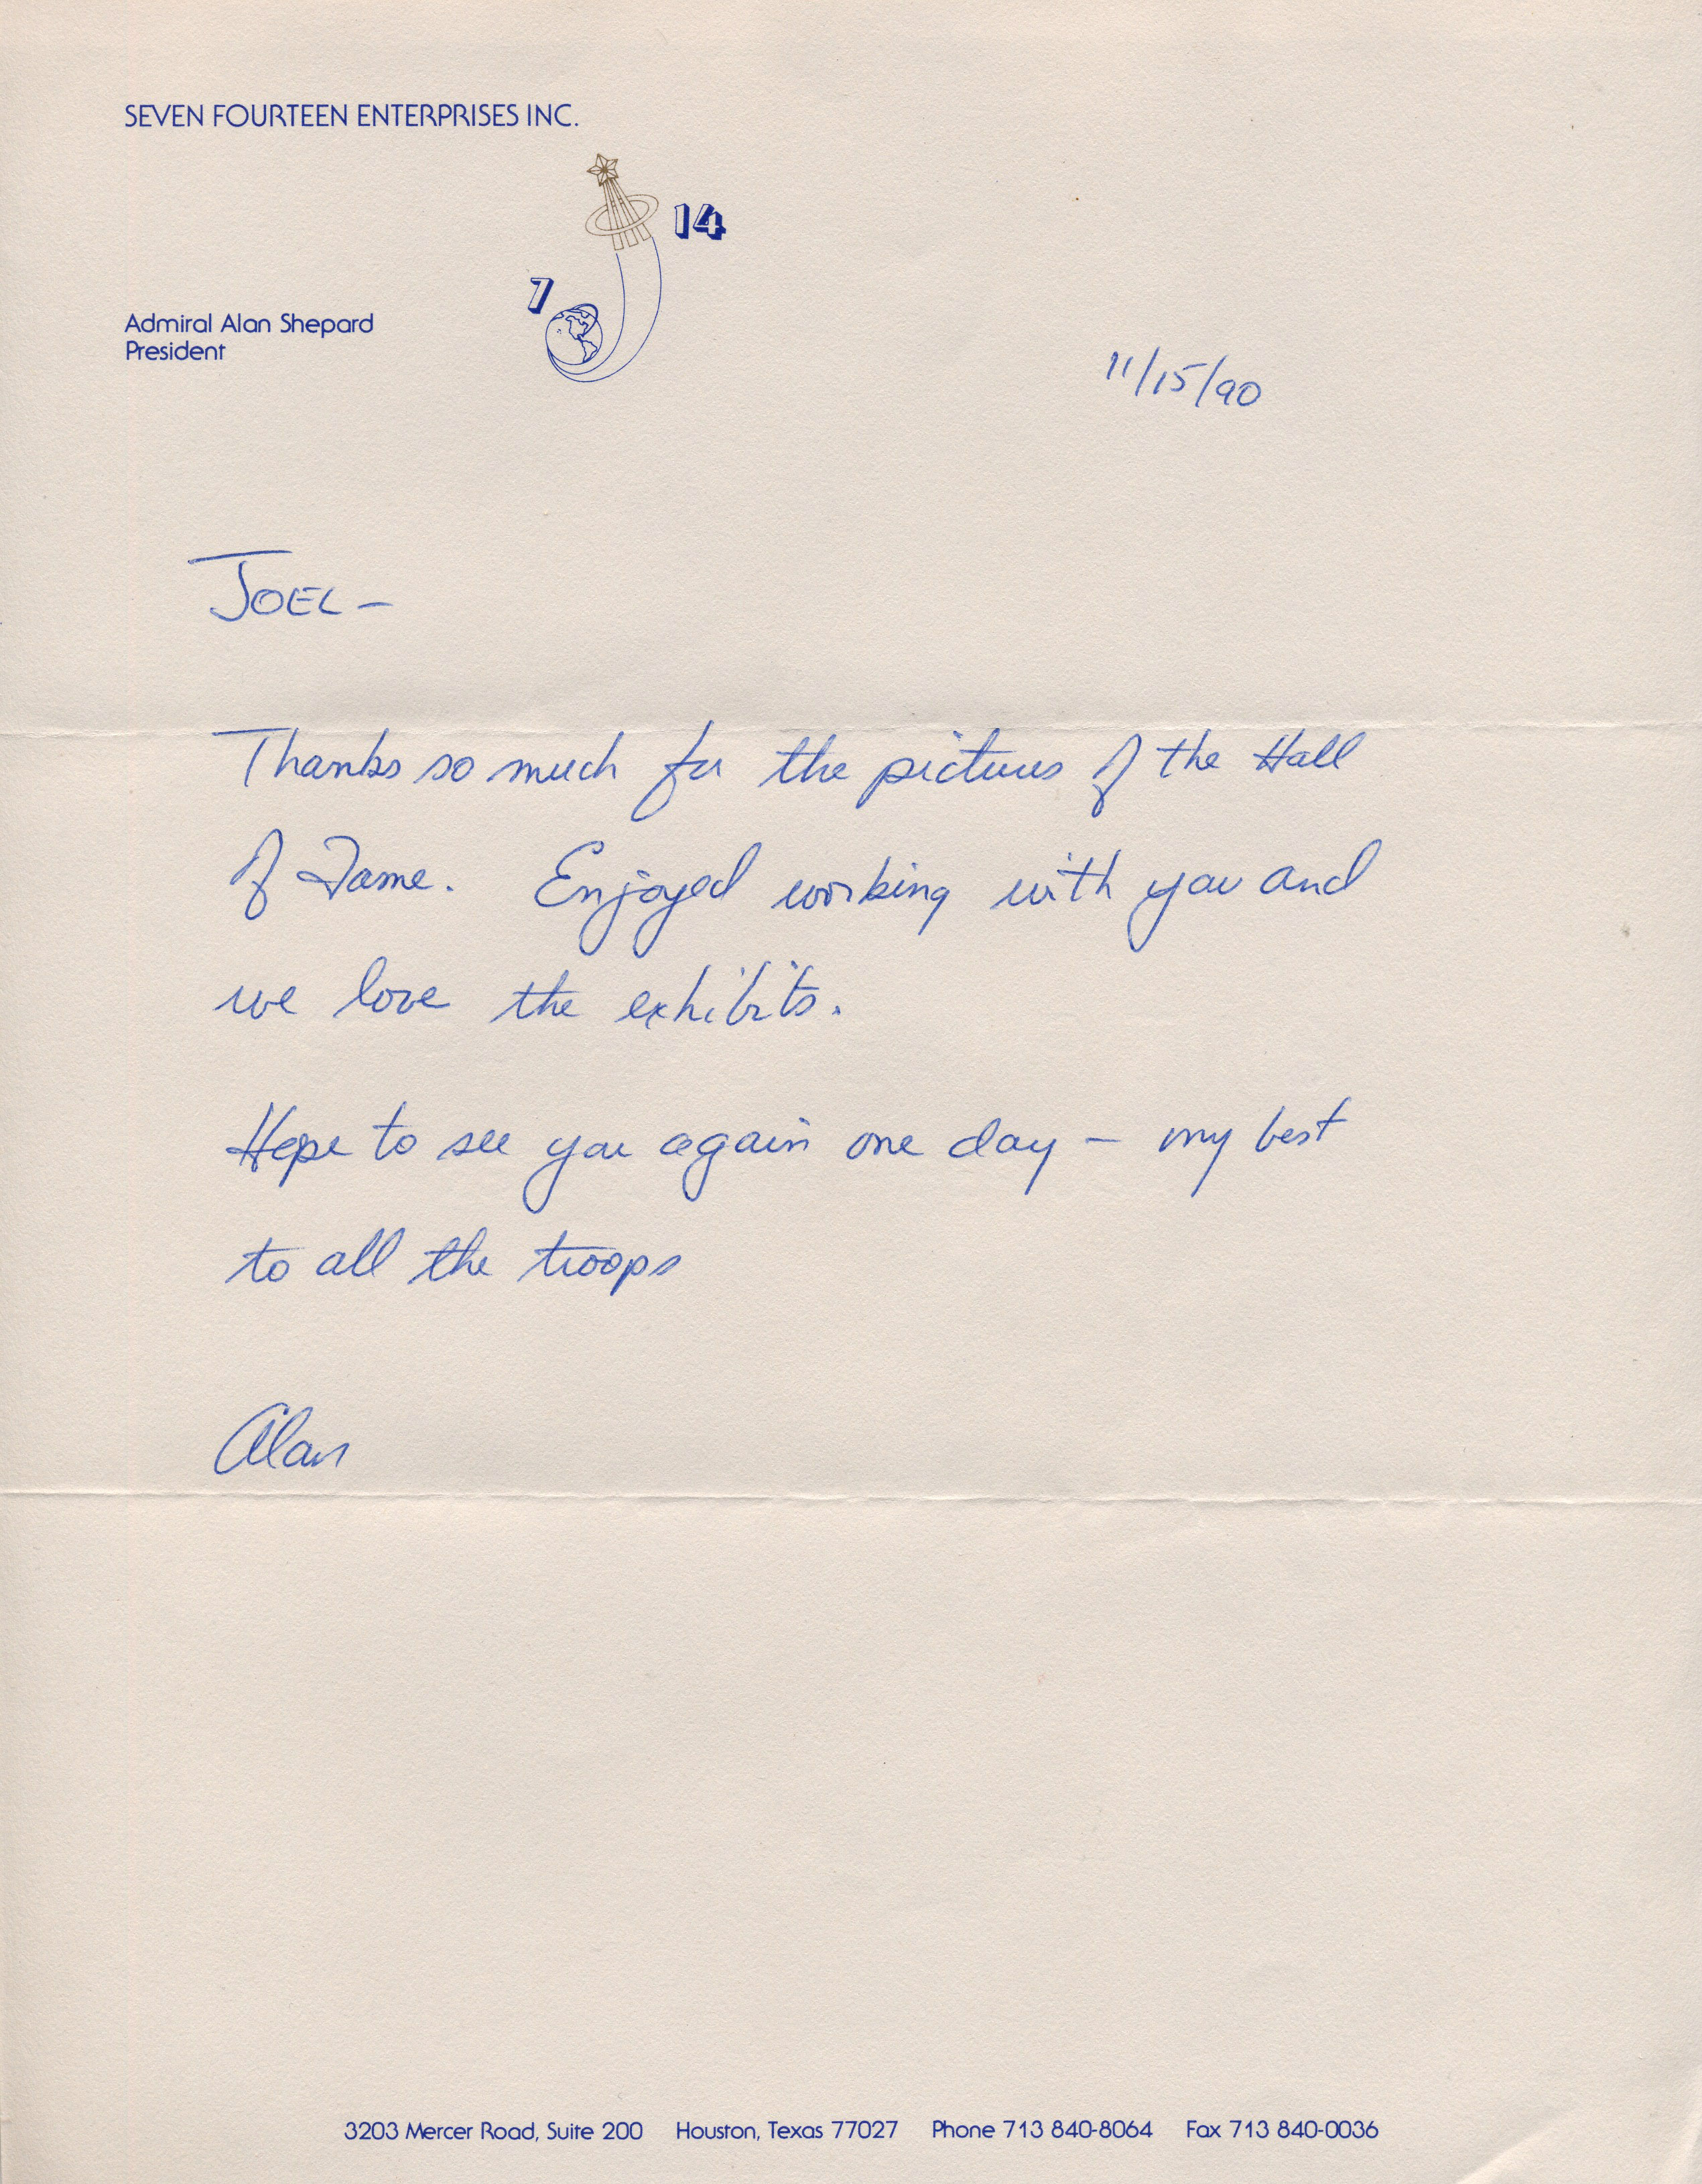 SEVEN FOURTEEN ENTERPRISES INC.
14
7
Admiral Alan Shepard
President
11/15/90
JOEL —
Thanks so much for the pictures of the Hall
of Fame. Enjoyed working with you and
we love the exhibits.
Hope to see you again one day — my best
to all the troops
Alan
3203 Mercer Road, Suite 200 Houston, Texas 77027 Phone 713 840-8064 Fax 713 840-0036